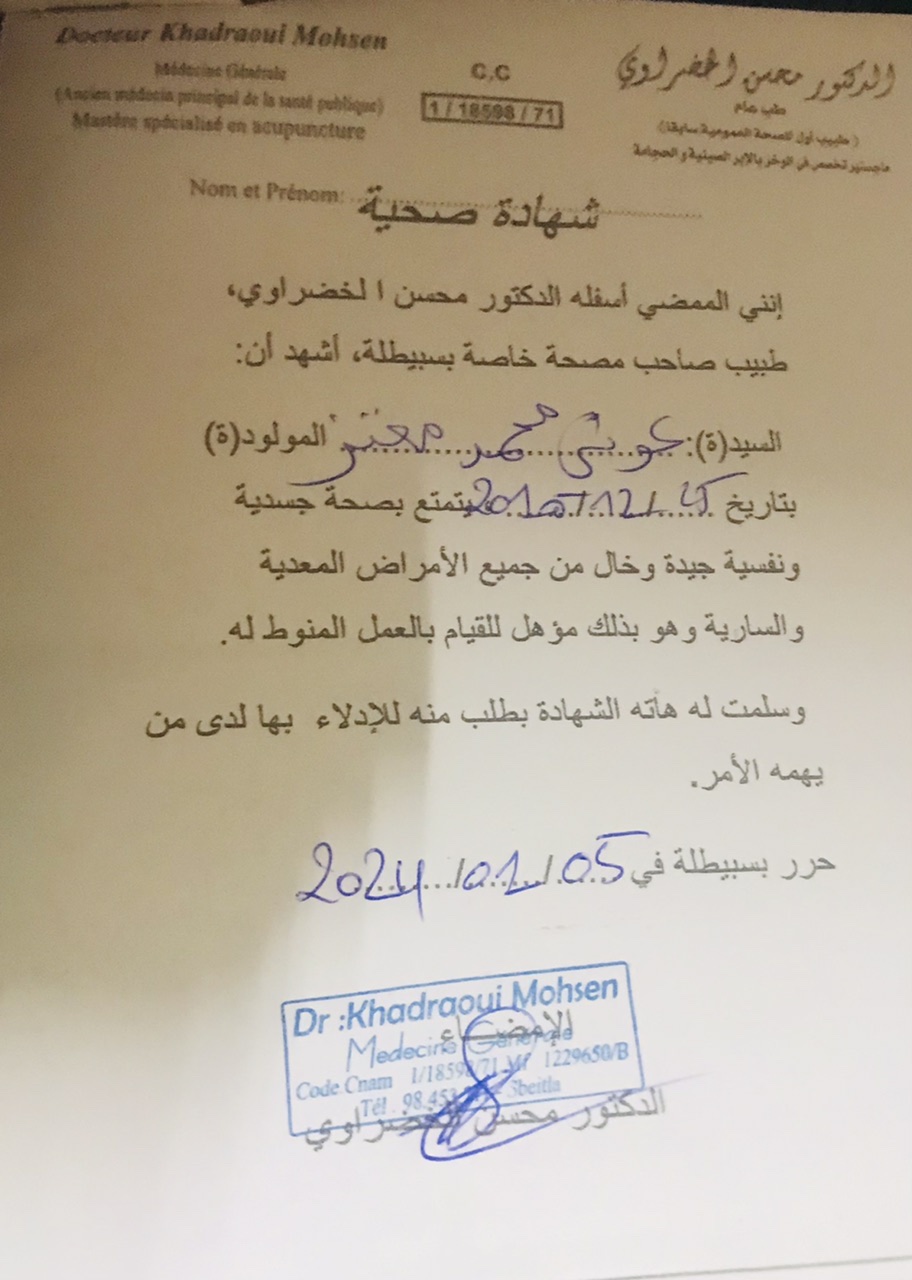 Docteur Khadraoui Mohsen
Médecine Générale
(Ancien médecin principal de la santé publique)
Mastère spécialisé en acupuncture
C.C
1 / 18598 / 71
الدكتور محسن الخضراوي
طب عام
(طبيب أول للصحة العمومية سابقا)
ماجستير تخصص في الوخز بالإبر الصينية و الحجامة
Nom et Prénom:
شهادة صحية
إنني الممضي أسفله الدكتور محسن الخضراوي،
طبيب صاحب مصحة خاصة بسبيطلة، أشهد أن:
السيد(ة): محمد معتز المولود(ة)
بتاريخ يتمتع بصحة جسدية
ونفسية جيدة وخال من جميع الأمراض المعدية
والسارية وهو بذلك مؤهل للقيام بالعمل المنوط له.
وسلمت له هاته الشهادة بطلب منه للإدلاء بها لدى من
يهمه الأمر.
حرر بسبيطلة في 05/01/2024
Dr :Khadraoui Mohsen
Medecine Generale
Code.Cnam 1/18598/71 Mf 1229650/B
Tél : 98.453 Sbeitla
الإمضاء
الدكتور محسن الخضراوي